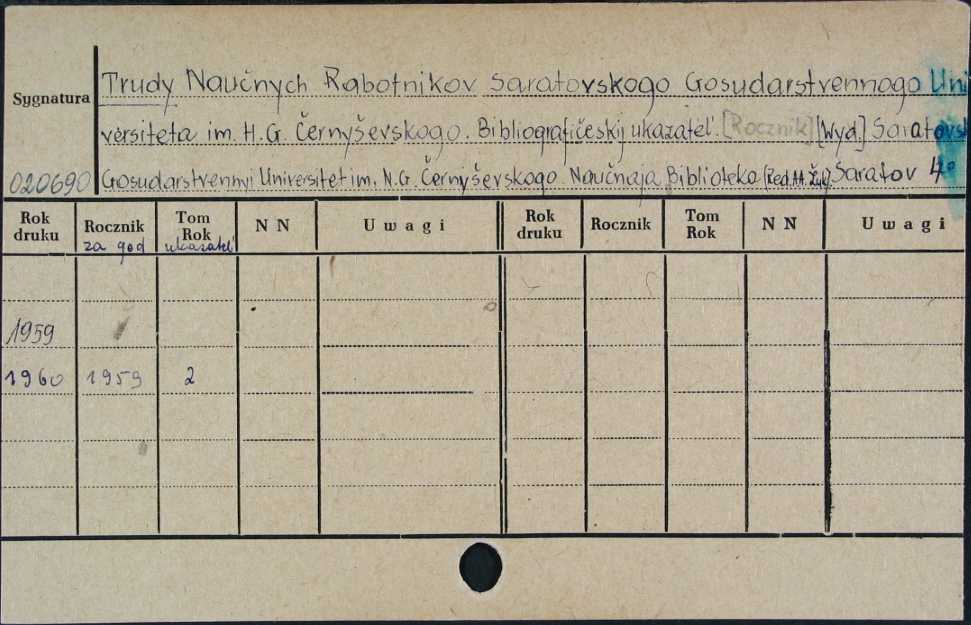 Trudy Naučnych Rabotnikov Saratovskogo Gosudarstvennogo Uni
Sygnatura
versiteta im. H.G. Černyševskogo. Bibliografičeskij ukazatel'. [Rocznik] [Wyd] Saratovsk
020690 Gosudarstvennyi Universitet im. N.G. Černyševskogo Naučnaja Biblioteka (Red. Saratov 4°
Rok druku Rocznik za god Tom Rok ukazatel' NN Uwagi Rok druku Rocznik Tom Rok NN Uwagi
1959
1960 1959 2